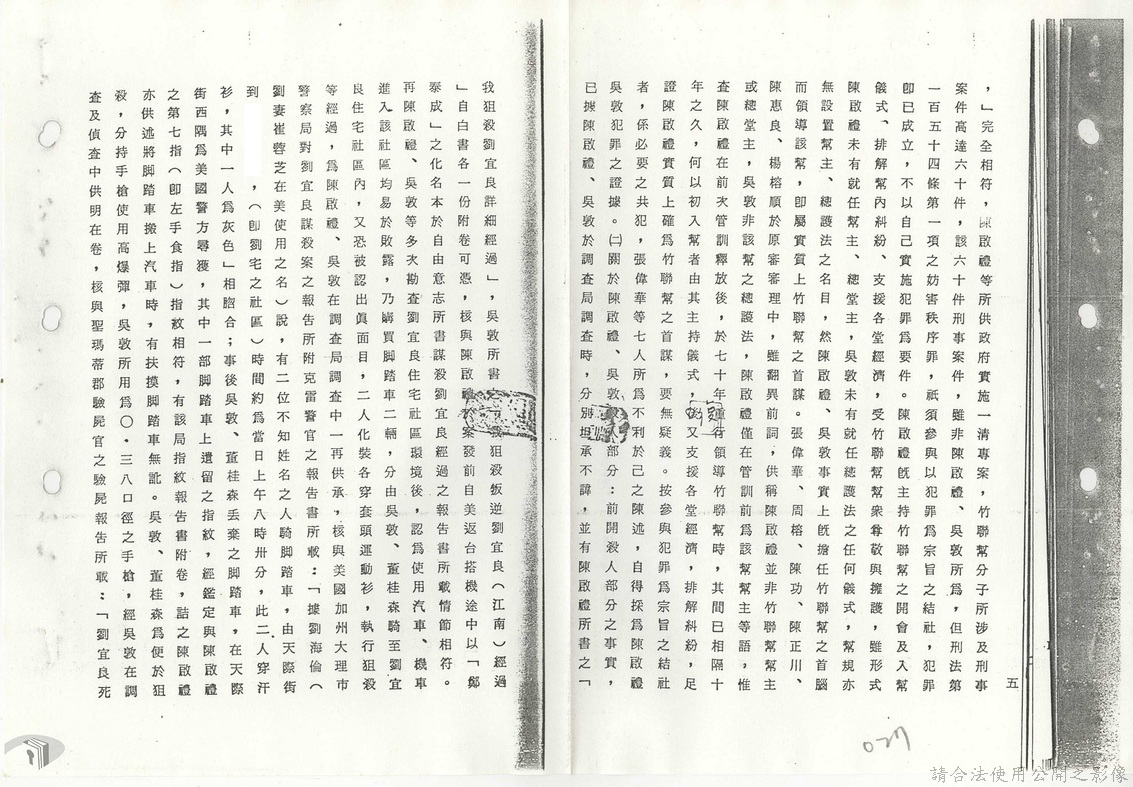 ，」完全相符，陳啟禮等所供政府實施一清專案，竹聯幫分子所涉及刑事
案件高達六十件，該六十件刑事案件，雖非陳啟禮、吳敦所為，但刑法第
一百五十四條第一項之妨害秩序罪，祇須參與以犯罪為宗旨之結社，犯罪
卽已成立，不以自己實施犯罪為要件。陳啟禮旣主持竹聯幫之開會及入幫
儀式、排解幫內糾紛、支援各堂經濟，受竹聯幫幫衆尊敬與擁護，雖形式
陳啟禮未有就任幫主、總堂主，吳敦未有就任總護法之任何儀式，幫規亦
無設置幫主、總護法之名目，然陳啟禮、吳敦事實上旣擔任竹聯幫之首腦
而領導該幫，卽屬實質上竹聯幫之首謀。張偉華、周榕、陳功、陳正川、
陳惠良、楊榕順於原審審理中，雖翻異前詞，供稱陳啟禮並非竹聯幫幫主
或總堂主，吳敦非該幫之總護法，陳啟禮僅在管訓前為該幫幫主等語，惟
查陳啟禮在前次管訓釋放後，於七十年重行領導竹聯幫時，其間已相隔十
年之久，何以初入幫者由其主持儀式，後又支援各堂經濟，排解糾紛，足
證陳啟禮實質上確為竹聯幫之首謀，要無疑義。按參與犯罪為宗旨之結社
者，係必要之共犯，張偉華等七人所為不利於己之陳述，自得採為陳啟禮
吳敦犯罪之證據。㈡關於陳啟禮、吳敦殺人部分：前開殺人部分之事實，
已據陳啟禮、吳敦於調查局調查時，分別坦承不諱，並有陳啟禮所書之「
五
我狙殺劉宜良詳細經過」，吳敦所書之「我狙殺叛逆劉宜良（江南）經過
」自白書各一份附卷可憑，核與陳啟禮於案發前自美返台搭機途中以「鄭
泰成」之化名本於自由意志所書謀殺劉宜良經過之報告書所載情節相符。
再陳啟禮、吳敦等多次勘查劉宜良住宅社區環境後，認為使用汽車、機車
進入該社區均易於敗露，乃購買脚踏車二輛，分由吳敦、董桂森騎至劉宜
良住宅社區內，又恐被認出眞面目，二人化裝各穿套頭運動衫，執行狙殺
等經過，為陳啟禮、吳敦在調查局調查中一再供承，核與美國加州大理市
警察局對劉宜良謀殺案之報告所附克雷警官之報告書所載：「據劉海倫（
劉妻崔蓉芝在美使用之名）說，有二位不知姓名之人騎脚踏車，由天際街
到　　　，（卽劉宅之社區）時間約為當日上午八時卅分，此二人穿汗
衫，其中一人為灰色」相脗合；事後吳敦、董桂森丢棄之脚踏車，在天際
街西隅為美國警方尋獲，其中一部脚踏車上遺留之指紋，經鑑定與陳啟禮
之第七指（卽左手食指）指紋相符，有該局指紋報告書附卷，詰之陳啟禮
亦供述將脚踏車搬上汽車時，有扶摸脚踏車無訛。吳敦、董桂森為便於狙
殺，分持手槍使用高爆彈，吳敦所用為〇・三八口徑之手槍，經吳敦在調
查及偵查中供明在卷，核與聖瑪蒂郡驗屍官之驗屍報告所載：「劉宜良死
027
請合法使用公開之影像